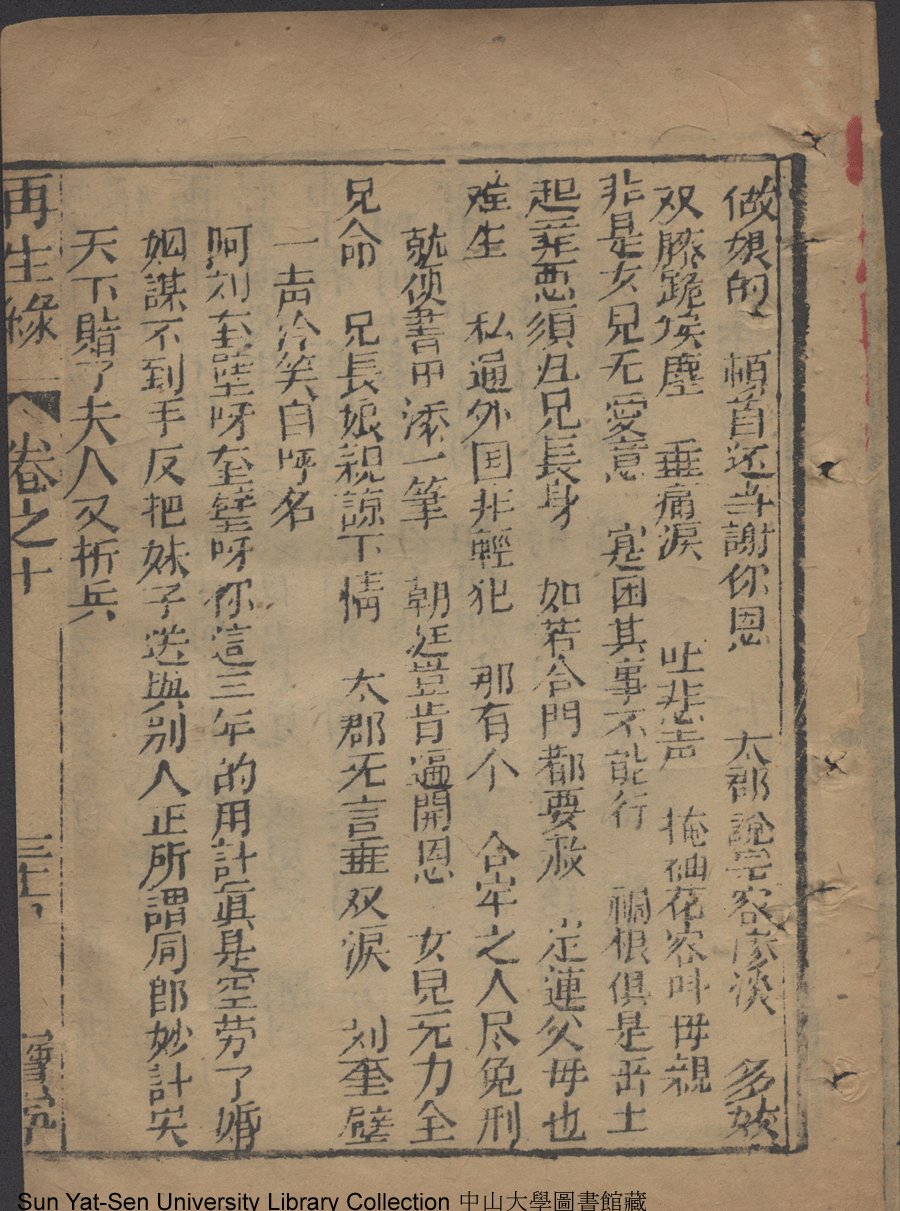 做娘的 頓首还当謝你恩 太郡說完容慘淡 多姣
双膝跪埃塵 垂痛淚 吐悲声 掩袖花容叫母親
非是女兒无愛意 寔因其事不能行 禍根俱是舌上
起 罪惡須在兄長身 如若合門都要赦 定連父母也
难生 私通外国非輕犯 那有个 合牢之人尽免刑
就使書中添一筆 朝廷豈肯遍開恩 女兒无力全
兄命 兄長娘親諒下情 太郡无言垂双淚 刘奎壁
一声冷笑自呼名
呵刘奎壁呀奎璧呀你這三年的用計眞是空劳了婚
姻謀不到手反把妹子送與別人正所謂周郎妙計安
天下賠了夫人又折兵
再生緣 卷之十
Sun Yat-Sen University Library Collection 中山大學圖書館藏